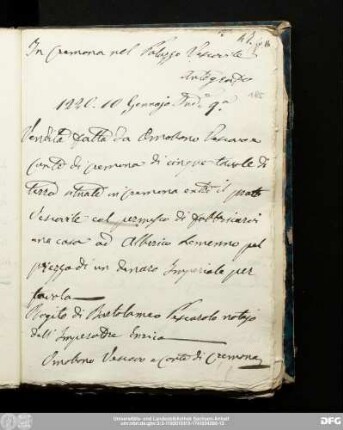 In Cremona nel Palazzo Vescovile
antegrado
1220. 10 Gennajo Ind.e 9.a
Vendita fatta da Omobono Vescovo e
Conte di Cremona di cinque tavole di
terra situate in Cremona entro il prato
Vescovile col permesso di fabbricarvi
una casa ad Alberico Lomenno pel
prezzo di un denaro Imperiale per
tavola
Rogito di Bartolameo Pescarolo notajo
dell' Imperatore Enrico
Omobono Vescovo e Conte di Cremona
Universitäts- und Landesbibliothek Sachsen-Anhalt
DFG